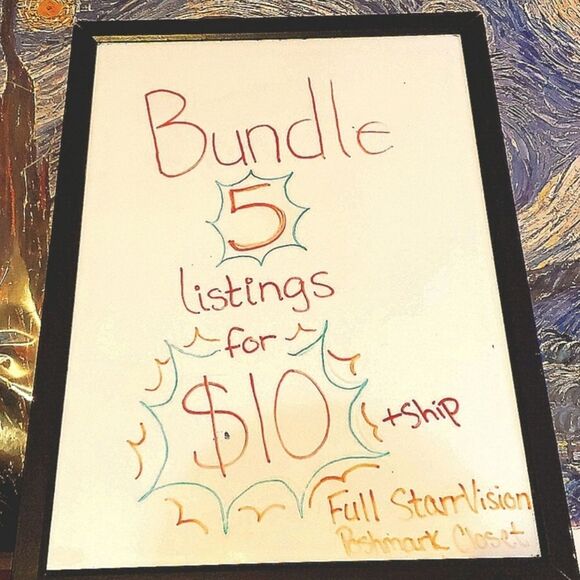 Bundle
5
listings
for
$10 +Ship
Full StarrVision
Poshmark Closet